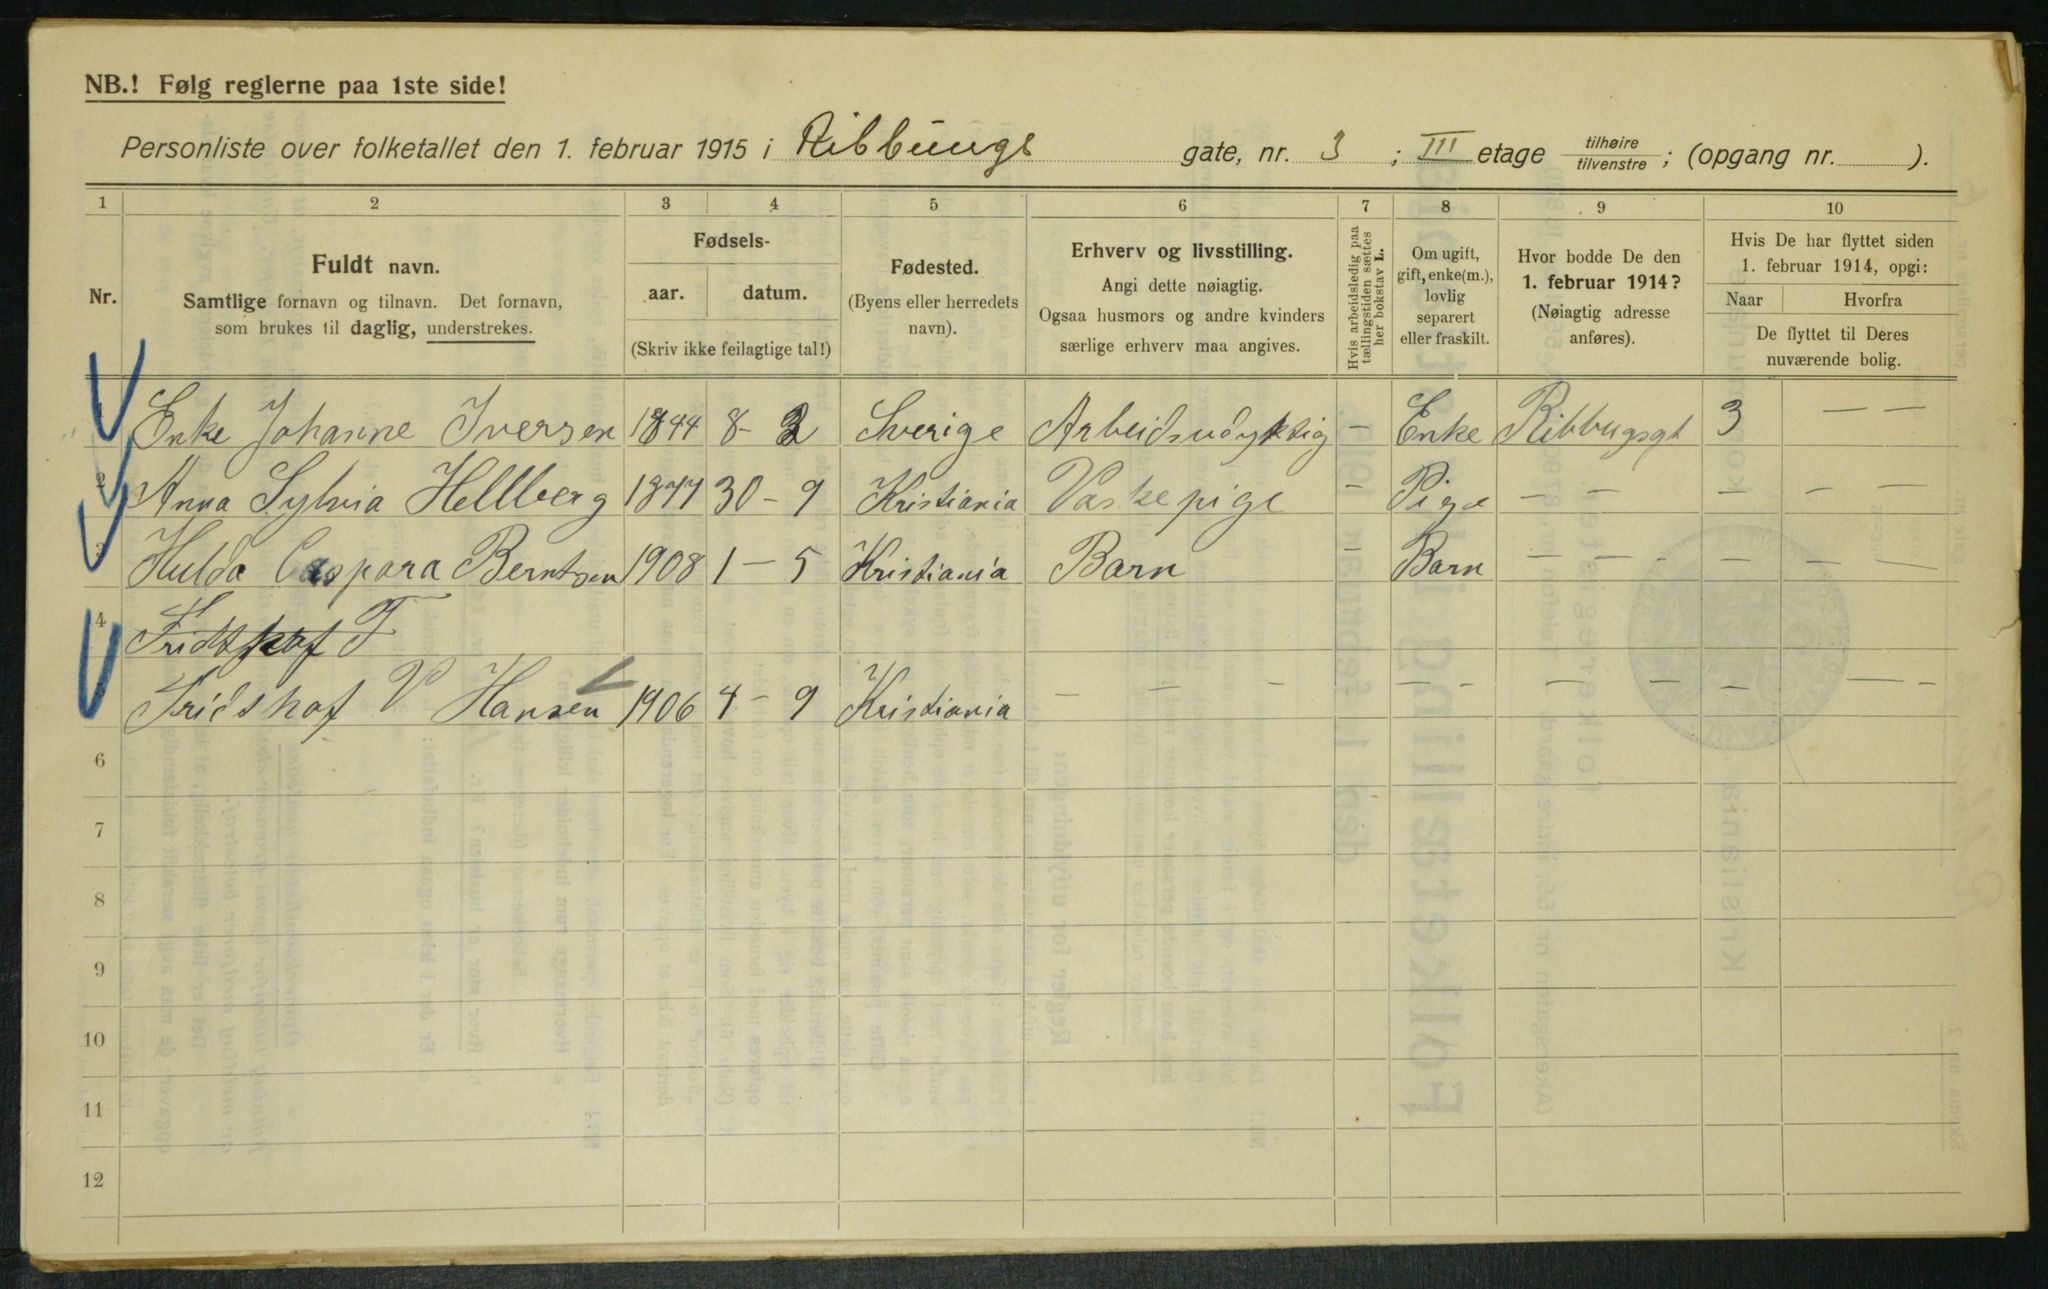 NB.! Følg reglerne paa 1ste side!
Personliste over folketallet den 1. februar 1915 i Ribbungs gate, nr. 3 ; III etage tilhøire tilvenstre ; (opgang nr. ).
1 2 3 4 5 6 7 8 9 10
Nr.
Fuldt navn.
Samtlige fornavn og tilnavn. Det fornavn,
som brukes til daglig, understrekes.
Fødsels-
aar. datum.
(Skriv ikke feilagtige tal!)
Fødested.
(Byens eller herredets
navn).
Erhverv og livsstilling.
Angi dette nøiagtig.
Ogsaa husmors og andre kvinders
særlige erhverv maa angives.
Hvis arbeidsledig paa
tællingstiden sættes
her bokstav L.
Om ugift,
gift, enke(m.),
lovlig
separert
eller fraskilt.
Hvor bodde De den
1. februar 1914?
(Nøiagtig adresse
anføres).
Hvis De har flyttet siden
1. februar 1914, opgi:
Naar Hvorfra
De flyttet til Deres
nuværende bolig.
Enke Johanne Iversen 1844 8-2 Sverige Arbeidsudyktig - Enke Ribbugsgt 3 — —
2 Anna Sylvia Hellberg 1877 30-9 Kristiania Vaskepige - Pige - - - - -
3 Hulda Caspara Berntsen 1908 1-5 Kristiania Barn - Barn - - - - - -
4 Fridtjhof T
Fridshof V Hansen 1906 4-9 Kristiania - - - - - - - - - -
6
7
8
9
10
11
12